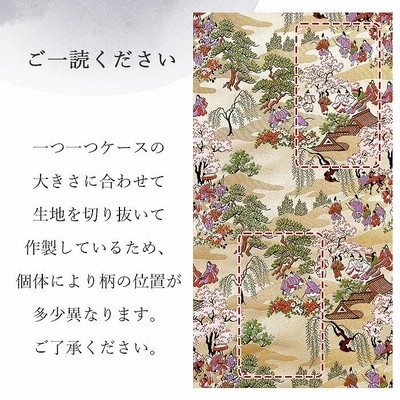 ご一読ください
一つ一つケースの
大きさに合わせて
生地を切り抜いて
作製しているため、
個体により柄の位置が
多少異なります。
ご了承ください。